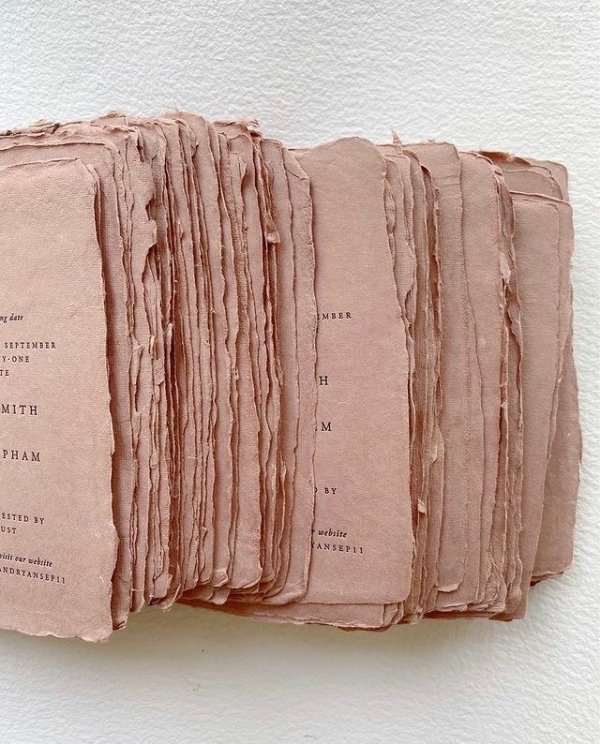 ng date
SEPTEMBER
Y-ONE
TE
MITH
PHAM
ESTED BY
UST
visit our website
ANDRYANSEP11
MBER
H
M
D BY
r website
YANSEP11